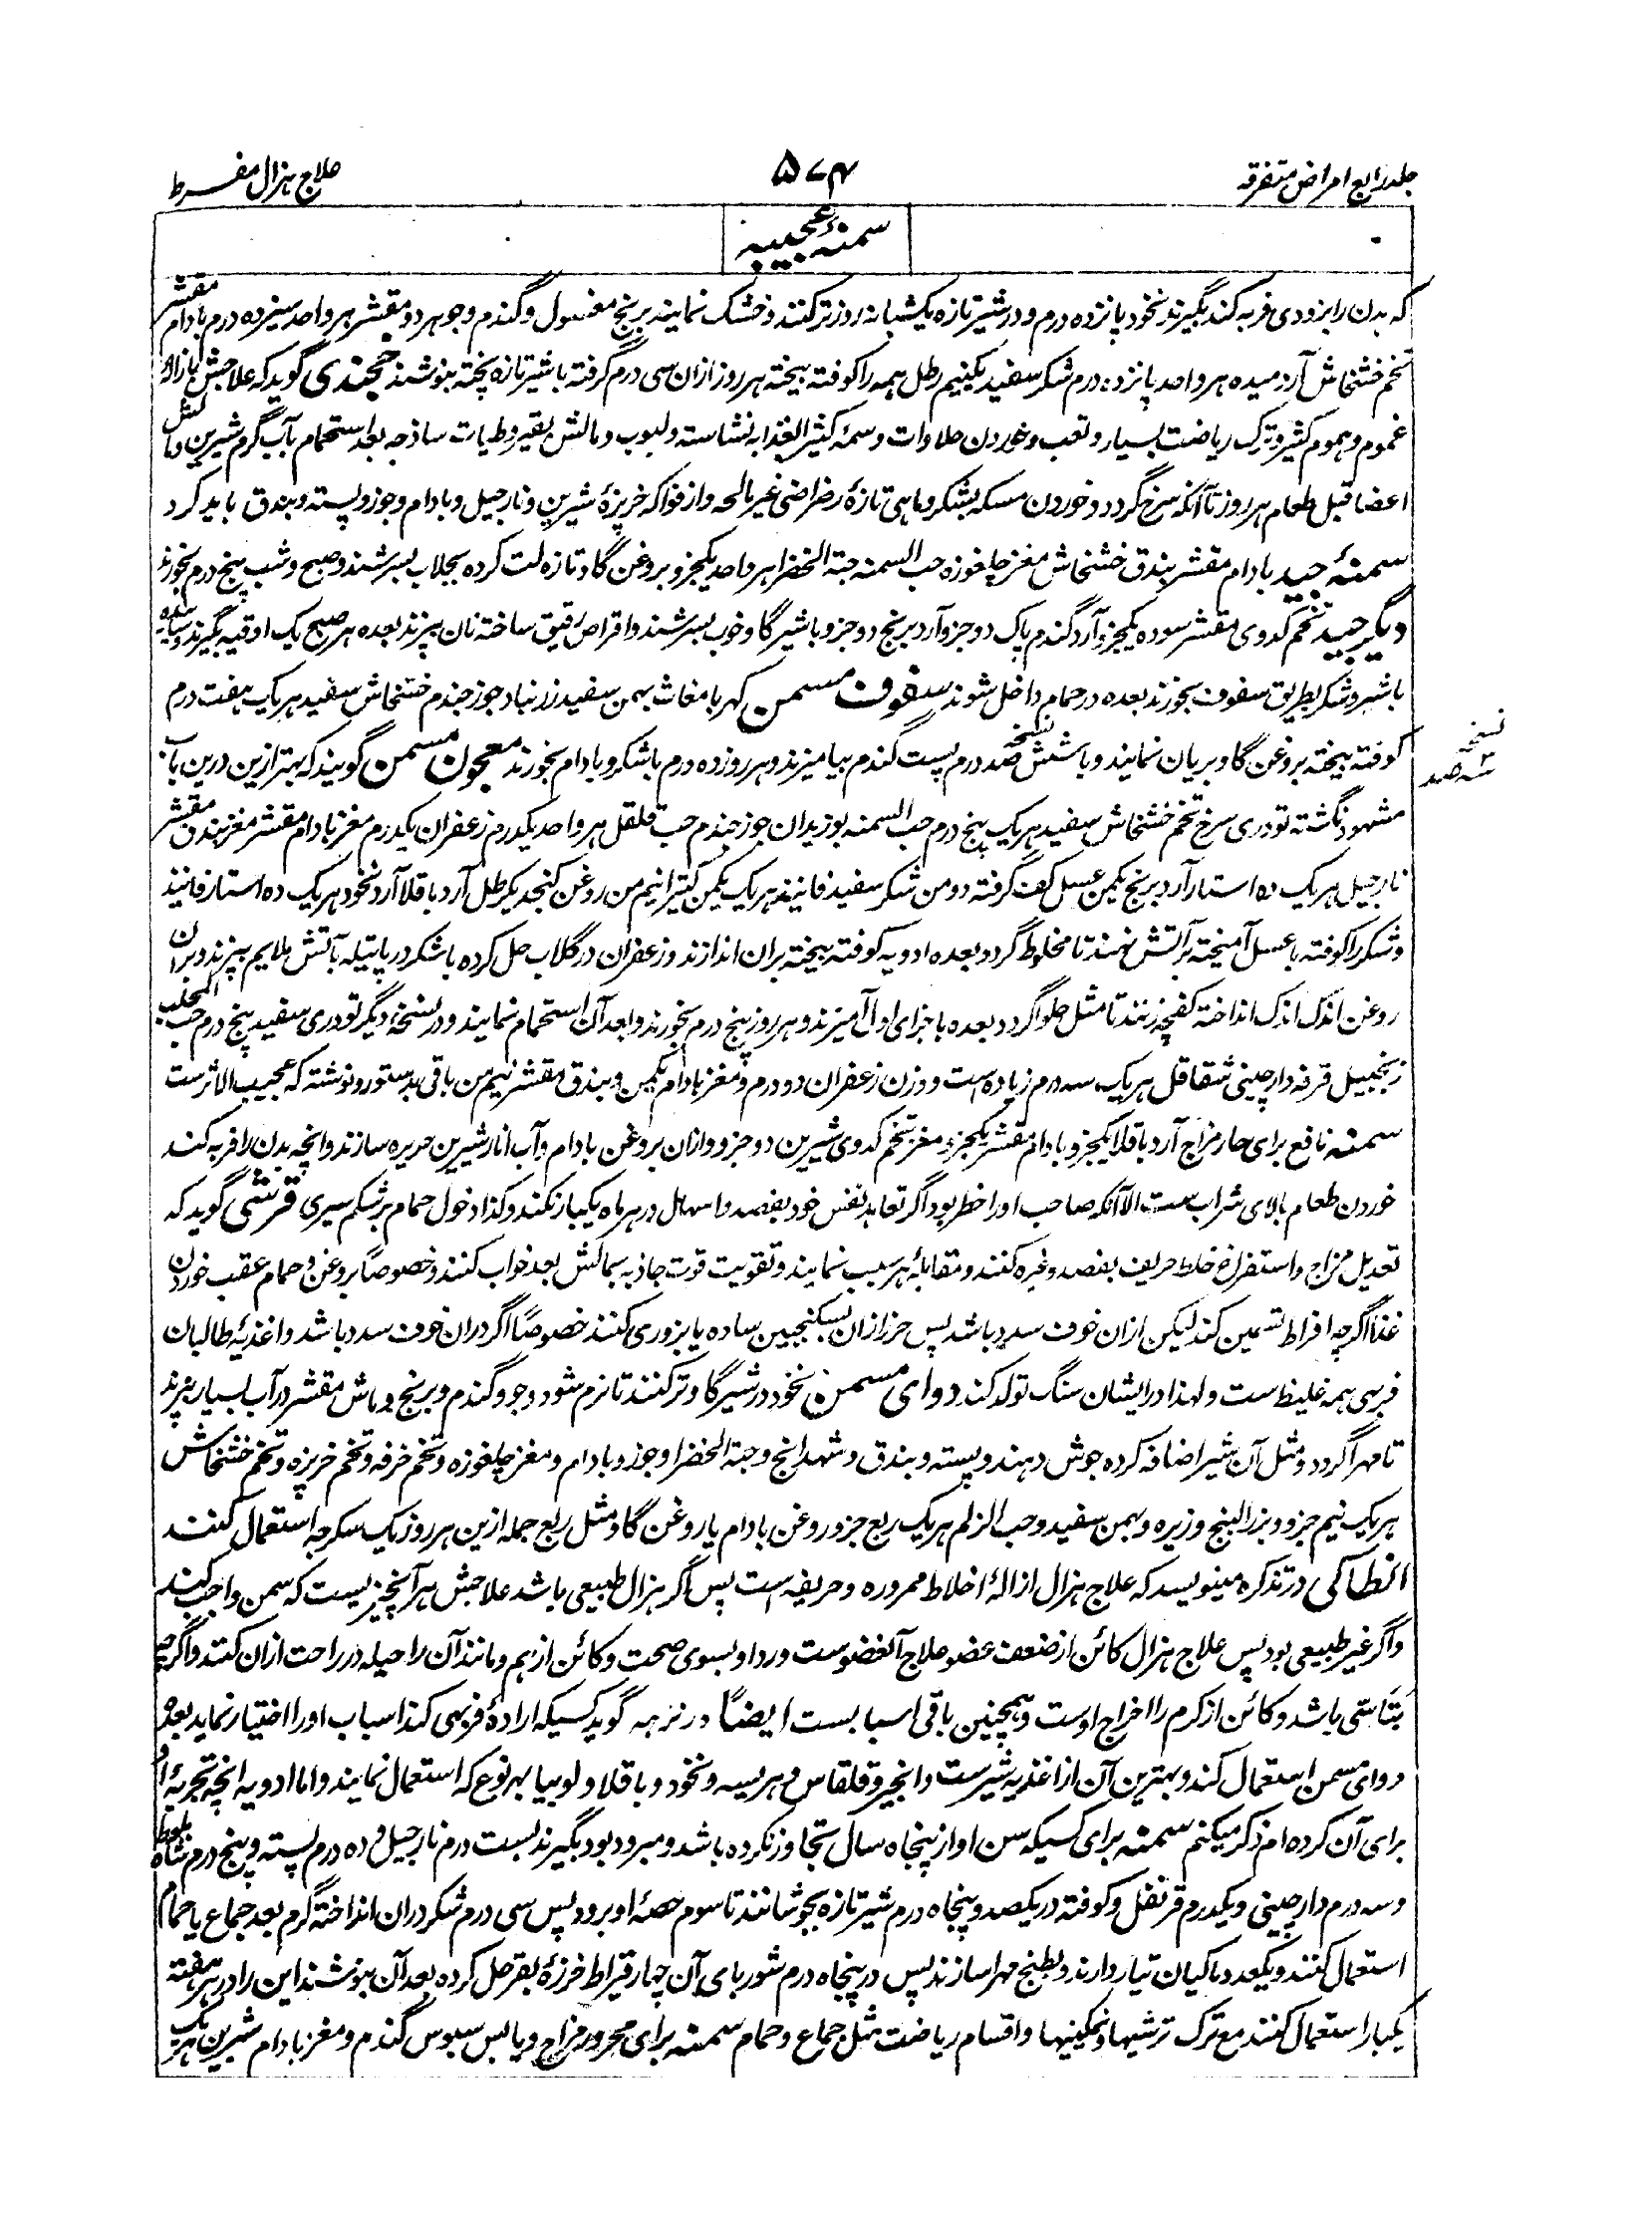 جلد رابع امراض متفرقہ
۵۷۴
علاج ہزال مفرط
سمنۂ عجیبہ
کہ بدن را بزودی فربہ کند بگیرند نخود پانزدہ درم و در شیر تازہ یکشبانہ روز تر کنند و خشک نمایند برنج مغسول و گندم و جو ہر دو مقشر ہر واحد سیزدہ درم بادام مقشر
تخم خشخاش آرد میدہ ہر واحد پانزدہ درم شکر سفید یکنیم رطل ہمہ را کوفتہ بیختہ ہر روز ازان سی درم گرفتہ با شیر تازہ پختہ بنوشند خجندی گوید کہ علاجش بازالۂ
غموم و ہموم کثیر و ترک ریاضت بسیار و تعب و خوردن حلاوات و سمۂ کثیر الغذا بہ نشاستہ و لبوب و مالش بقیروطیات ساذجہ بعد استحمام بآب گرم شیرین و مالش
اعضا قبل طعام ہر روز تا آنکہ سرخ گردد و خوردن مسکہ بشکر و ماہی تازۂ رضراضی غیر مالحہ و از فواکہ خربزۂ شیرین و نارجیل و بادام و جوز و پستہ و بندق باید کرد
سمنۂ جید بادام مقشر بندق خشخاش مغز چلغوزہ حب السمنہ حبۃ الخضرا ہر واحد یکجزو بروغن گاو تازہ لت کردہ بجلاب بسرشند و صبح و شب پنج درم بخورند
دیگر جید تخم کدوی مقشر سودہ یکجزو آرد گندم پاک دو جزو آرد برنج دو جزو با شیر گاو خوب بسرشند و اقراص رقیق ساختہ نان بپزند بعدہ ہر صبح یک اوقیہ بگیرند و سائیدہ
با شیر و شکر بطریق سفوف بخورند بعدہ در حمام داخل شوند سفوف مسمن کہربا مغاث بہمن سفید زرنباد جوز جندم خشخاش سفید ہر یک ہفت درم
کوفتہ بیختہ بروغن گاو بریان نمایند و با شش صد درم پست گندم بیامیزند و ہر روز دہ درم با شکر و بادام بخورند معجون مسمن گویند کہ بہتر ازین درین باب
نسخہ
سہ صد
مشہود نگشتہ تودری سرخ تخم خشخاش سفید ہر یک پنج درم حب السمنہ بوزیدان جوز جندم حب قلقل ہر واحد یکدرم زعفران یکدرم مغز بادام مقشر مغز بندق مقشر
نارجیل ہر یک دہ استار آرد برنج یکمن عسل کف گرفتہ دو من شکر سفید فانیذ ہر یک یکمن کتیرا نیم من روغن کنجد یکرطل آرد باقلا آرد نخود ہر یک دہ استار فانیذ
و شکر را کوفتہ با عسل آمیختہ بر آتش نہند تا مخلوط گردد بعدہ ادویہ کوفتہ بیختہ بران اندازند و زعفران در گلاب حل کردہ با شکر در پاتیلہ بآتش ملایم بپزند و بران
روغن اندک اندک انداختہ کفچہ زنند تا مثل حلوا گردد بعدہ باجزای اول آمیزند و ہر روز پنج درم بخورند و بعد آن استحمام نمایند و در نسخۂ دیگر تودری سفید پنج درم حب المحلب
زنجبیل قرفہ دارچینی شقاقل ہر یک سہ درم زیادہ است و وزن زعفران دو درم و مغز بادام یکمن و بندق مقشر نیم من باقی بدستور و نوشتہ کہ عجیب الاثرست
سمنہ نافع برای حار مزاج آرد باقلا یکجزو بادام مقشر یکجزو مغز تخم کدوی شیرین دو جزو و ازان بروغن بادام و آب انار شیرین حریرہ سازند و انچہ بدن را فربہ کند
خوردن طعام بالای شراب ست الا آنکہ صاحب او را خطر بود اگر تعاہد نفس خود بفصد و اسہال در ہر ماہ یکبار نکند و کذا دخول حمام بر شکم سیری قرشی گوید کہ
تعدیل مزاج و استفراغ خلط حریف بفصد و غیرہ کنند و مقابلۂ ہر سبب نمایند و تقویت قوت جاذبہ بمالش بعد خواب کنند و خصوصاً بروغن و حمام عقب خوردن
غذا اگرچہ افراط تسمین کند لیکن ازان خوف سدد باشد پس حرز ازان بسکنجبین سادہ یا بزوری کنند خصوصاً اگر دران خوف سدد باشد و اغذیۂ طالبان
فربہی ہمہ غلیظ ست و لہذا در ایشان سنگ تولد کند دوای مسمن نخود در شیر گاو تر کنند تا نرم شود و جو و گندم و برنج و ماش مقشر در آب بسیار بپزند
تا مہرا گردد و مثل آن شیر اضافہ کردہ جوش دہند و پستہ و بندق و شہدانج و حبۃ الخضرا و جوز و بادام و مغز چلغوزہ و تخم خرفہ و تخم خربزہ و تخم خشخاش
ہر یک نیم جزو و بزرالبنج و زیرہ و بہمن سفید و حب الزلم ہر یک ربع جزو روغن بادام یا روغن گاو مثل ربع جملہ ازین ہر روز یک سکرجہ استعمال کنند
انطاکی در تذکرہ مینویسد کہ علاج ہزال ازالۂ اخلاط ممرورہ و حریفہ است پس اگر ہزال طبیعی باشد علاجش ہر آنچیزیست کہ سمن واجب کند
و اگر غیر طبیعی بود پس علاج ہزال کائن از ضعف عضو علاج آنعضوست و رد او بسوی صحت و کائن از ہم و مانند آن را حیلہ در راحت ازان کنند و اگرچہ
بتناسی باشد و کائن از کرم را اخراج اوست و ہمچنین باقی اسبابست ایضاً در نزہہ گوید کسیکہ ارادۂ فربہی کند اسباب او را اختیار نماید بعدہ
دوای مسمن استعمال کند و بہترین آن از اغذیہ شیرست و انجیر و قلقاس و ہریسہ و نخود و باقلا و لوبیا بہر نوع کہ استعمال نمایند و اما ادویہ انچہ تجربۂ او
برای آن کردہ ام ذکر میکنم سمنہ برای کسیکہ سن او از پنجاہ سال تجاوز نکردہ باشد و مبرود بود بگیرند بست درم نارجیل و دہ درم پستہ و پنج درم شاہ بلوط
و سہ درم دارچینی و یکدرم قرنفل و کوفتہ در یکصد و پنجاہ درم شیر تازہ بجوشانند تا سوم حصۂ او برود پس سی درم شکر دران انداختہ گرم بعد جماع یا حمام
استعمال کنند و یکعدد ماکیان تیار دارند و بطبخ مہرا سازند پس در پنجاہ درم شوربای آن چہار قیراط خرزۂ بقر حل کردہ بعد آن بنوشند این را در ہر ہفتہ
یکبار استعمال کنند مع ترک ترشیہا و نمکینیہا و اقسام ریاضت مثل جماع و حمام سمنہ برای محرور مزاج و یابس سبوس گندم و مغز بادام شیرین ہر یک